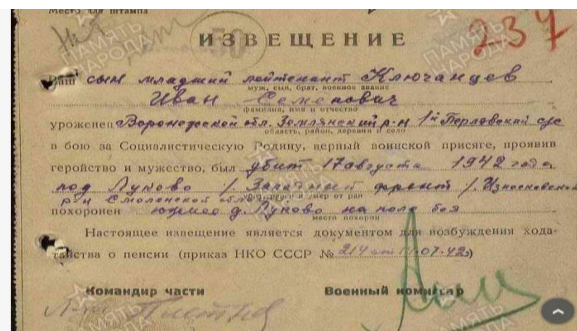 Место для штампа
50
237
ИЗВЕЩЕНИЕ
Ваш сын младший лейтенант Ключанцев
муж, сын, брат, военное звание
Иван Семенович
фамилия, имя и отчество
уроженец Воронежской обл. Землянский р-н 1й Перловский с/с
область, район, деревня и село
в бою за Социалистическую Родину, верный воинской присяге, проявив
геройство и мужество, был убит 17 августа 1942 года
под Луково / Западный фронт / Износковский
р-н Смоленской обл.
похоронен южнее д. Луково на поле боя
место похорон
Настоящее извещение является документом для возбуждения хода-
тайства о пенсии (приказ НКО СССР № 214 от 14-07-42)
Командир части Военный комиссар
ПАМЯТЬ НАРОДА